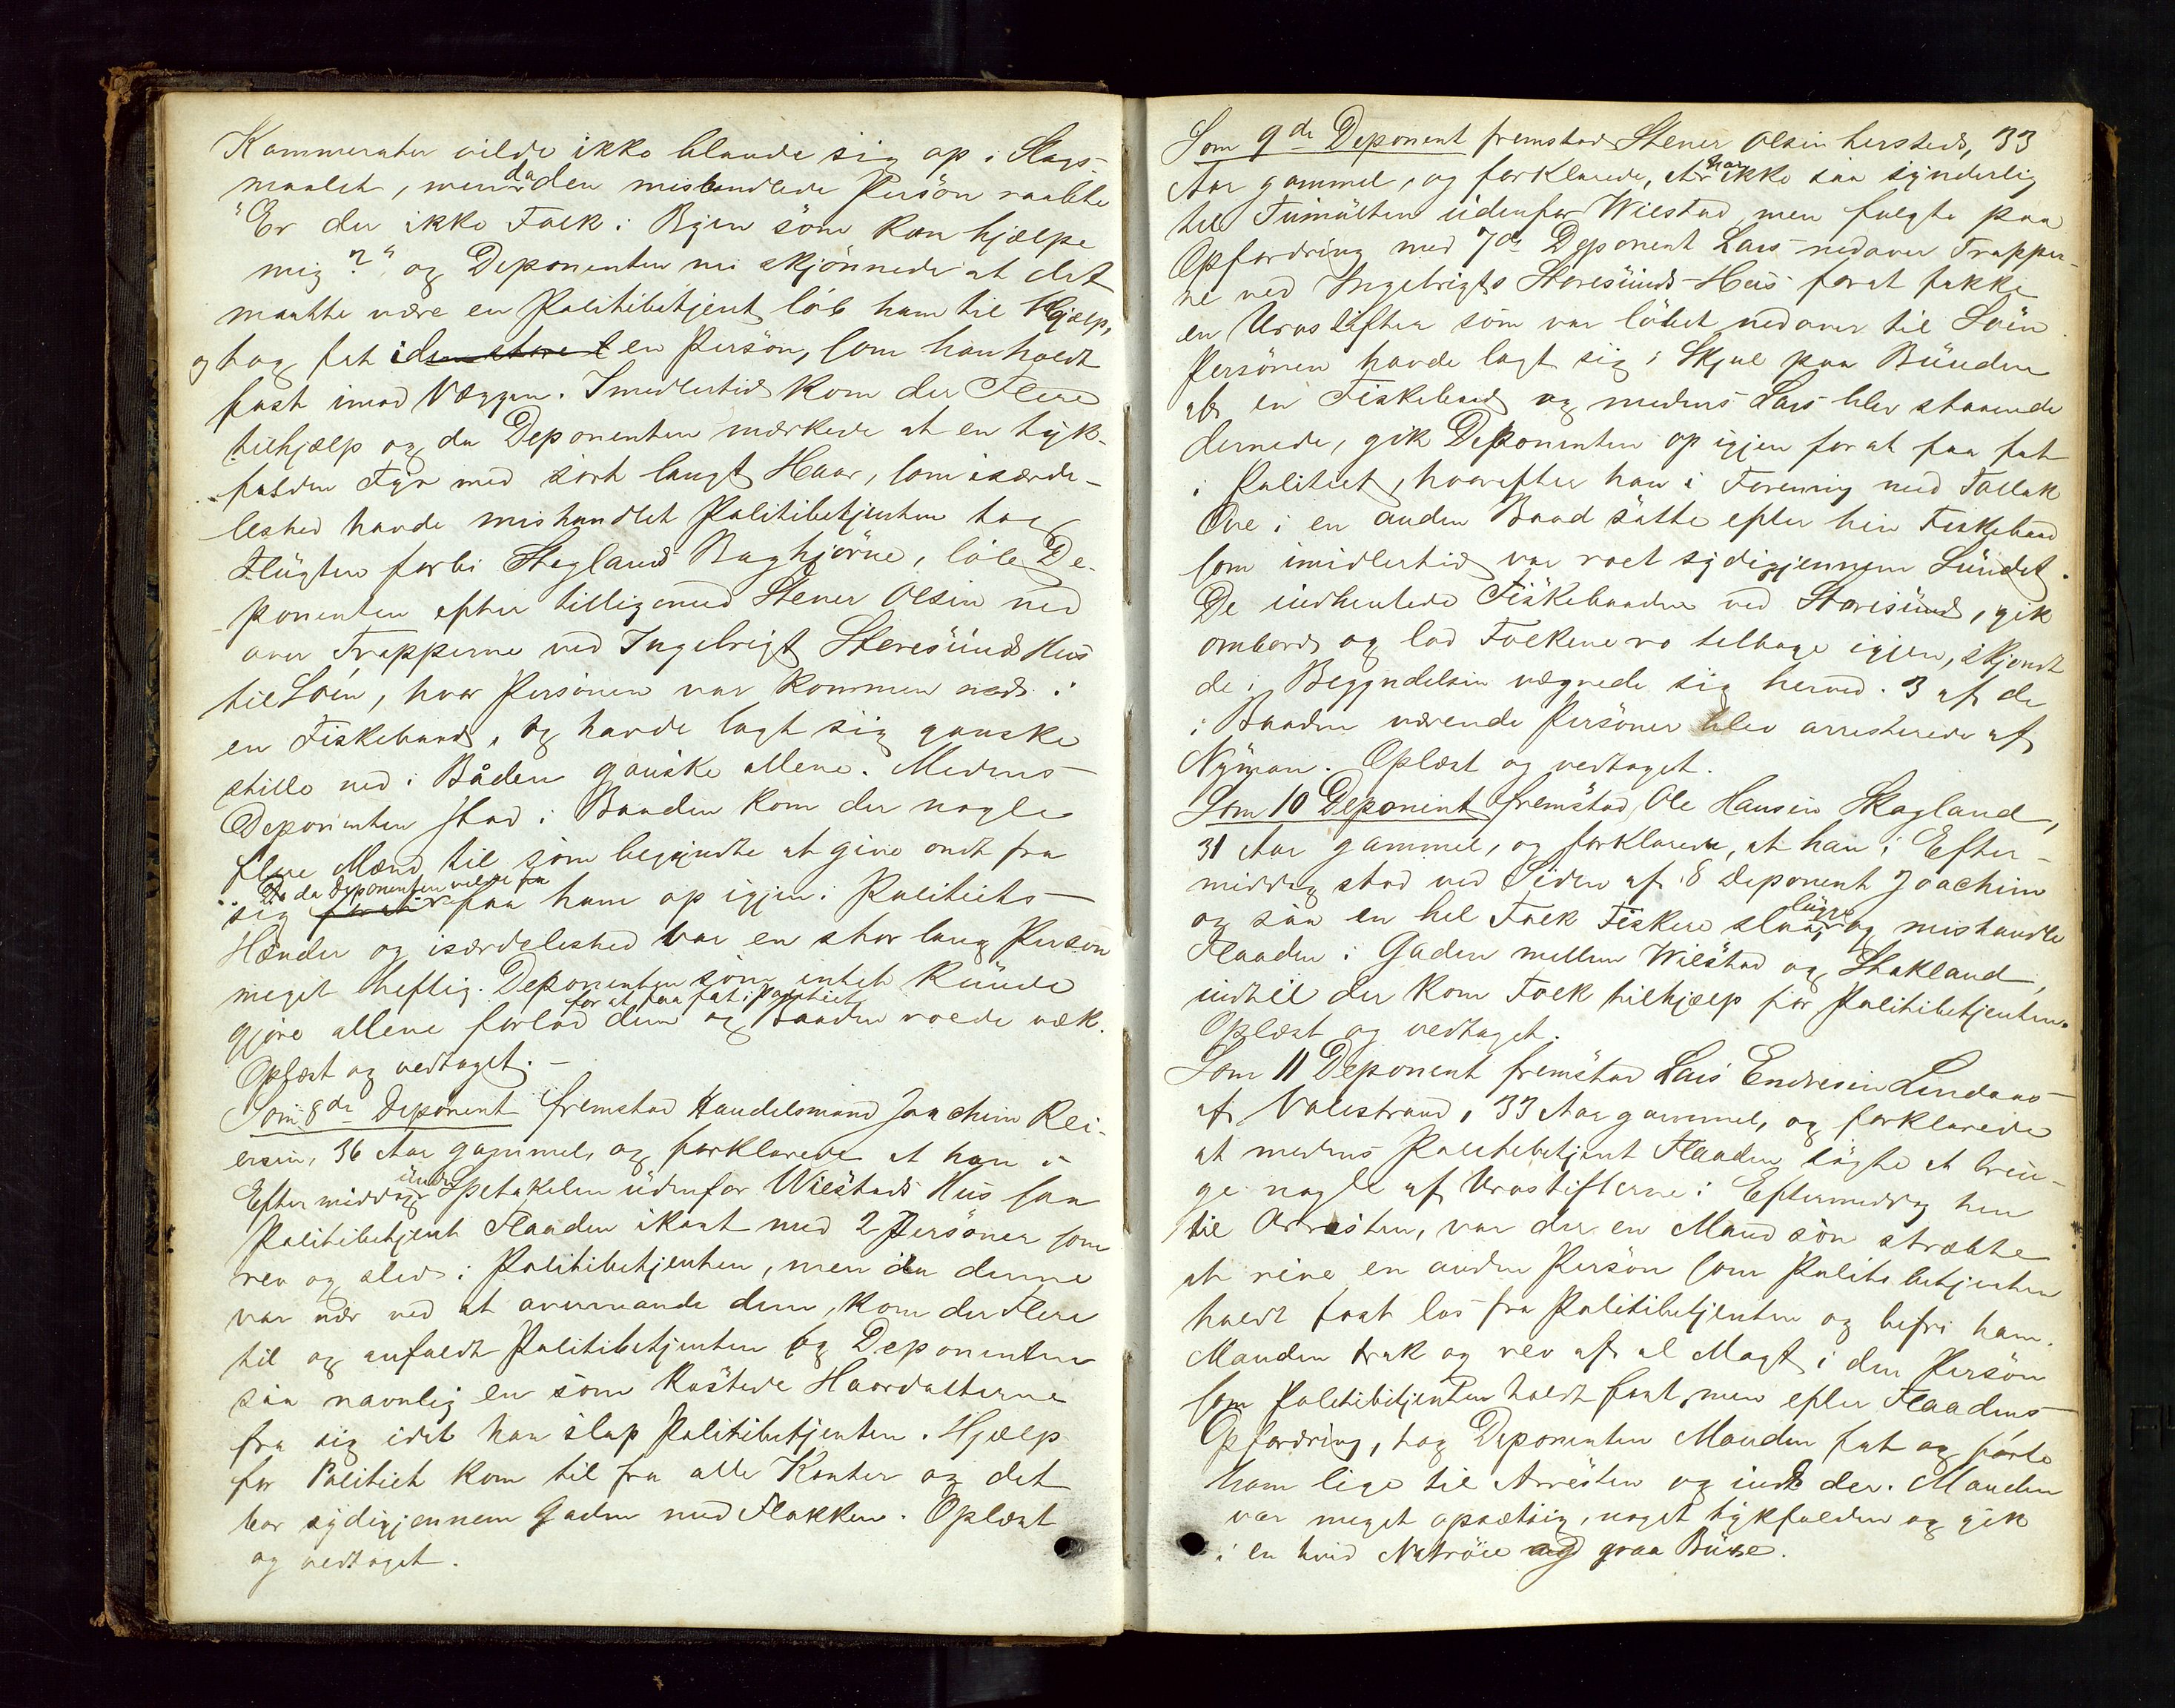 Kammerater vilde ikke blande sig op i Slags-
maalet, men da den mishandlede Person raabte
"Er der ikke Folk i Byen som kan hjælpe
mig?" og Deponenten nu skjønnede at det
maatte være en Politibetjent løb ham til Hjælp,
og tog fat i den store t en Person, som han holdt
fast imod Væggen. Imidlertid kom der Flere
tilhjælp og da Deponenten mærkede at en tyk-
falden Fyr med sort langt Haar, som isærde-
leshed havde mishandlet Politibetjenten tog
Flugten forbi Steglands Baghjørne, løb De-
ponenten efter tilligemed Stener Olsen ned
over Trapperne ved Ingebrigt Storesunds Hus
til Søen, hvor Personen var kommen ned i
en Fiskebaad, og havde lagt sig ganske
stille ned i Båden ganske allene. Medens
Deponenten stod i Baaden kom der nogle
flere Mænd til som begyndte at give ondt fra
sig da Deponenten vilde faa ham op igjen i Politiets
Hænder og isærdeleshed var en stor lang Person
meget heftig. Deponenten som intet kunde
gjøre allene forlod dem for at faa fat i Politiet og Baaden roede væk.
Oplæst og vedtaget. –
Som 8de Deponent fremstod Handelsmand Joachim Rei-
ersen, 36 Aar gammel, og forklarede at han i
Eftermiddag under Spetakelen udenfor Wiestads Hus saa
Politibetjent Flaaden ikast med 2 Personer som
rev og sled i Politibetjenten, men da denne
var nær ved at overmande dem, kom der Flere
til og anfaldt Politibetjenten og Deponenten
saa navnlig en som kastede Haardotterne
fra sig idet han slap Politibetjenten. Hjælp
for Politiet kom til fra alle Kanter og det
bar sydigjennem Gaden med Flokken. Oplæst
og vedtaget.
Som 9de Deponent fremstod Stener Olsen hersteds, 33
Aar gammel, og forklarede, at han ikke saa synderlig
til Tumulten udenfor Wiestad, men fulgte paa
Opfordring med 7de Deponent Lars nedover Trapper-
ne ved Ingebrigts Storesunds Hus for at pakke
en Urostifter som var løbet nedover til Søen.
Personen havde lagt sig i Skjul paa Bunden
af en Fiskebaad og medens Lars blev staaende
dernede, gik Deponenten op igjen for at faa fat
i Politiet, hvorefter han i Forening med Tollak
Ove i en anden Baad satte efter hin Fiskebaad
som imidlertid var roet sydigjennem Sundet.
De indhentede Fiskebaaden ved Storesund, gik
ombord og lod Folkene ro tilbage igjen, skjøndt
de i Begyndelsen vægrede sig herved. 3 af de
i Baaden værende Personer blev arresterede af
Nyman. Oplæst og vedtaget.
Som 10 Deponent fremstod Ole Hansen Skagland,
31 Aar gammel, og forklarede, at han i Efter-
middag stod ved Siden af 8 Deponent Joachim
og saa en hel Folk Fiskere slaa og mishandle
Flaaden i Gaden mellem Wiestad og Stakland,
indtil der kom Folk tilhjælp for Politibetjenten.
Oplæst og vedtaget.
Som 11 Deponent fremstod Lars Endresen Lindaas
af Valestrand, 33 Aar gammel, og forklarede
at medens Politibetjent Flaaden søgte at brin-
ge nogle af Urostifterne i Eftermiddag hen
til Arresten, var der en Mand som stræbte
at rive en anden Person som Politibetjenten
holdt fast los fra Politibetjenten og befri ham.
Manden trak og rev af al Magt i den Person
som Politibetjenten holdt fast, men efter Flaadens
Opfordring, tog Deponenten Manden fat og førte
ham lige til Arresten og ind der. Manden
var meget opsætsig, noget tykfalden og gik
i en hvid Nattrøie og graa Buxe.